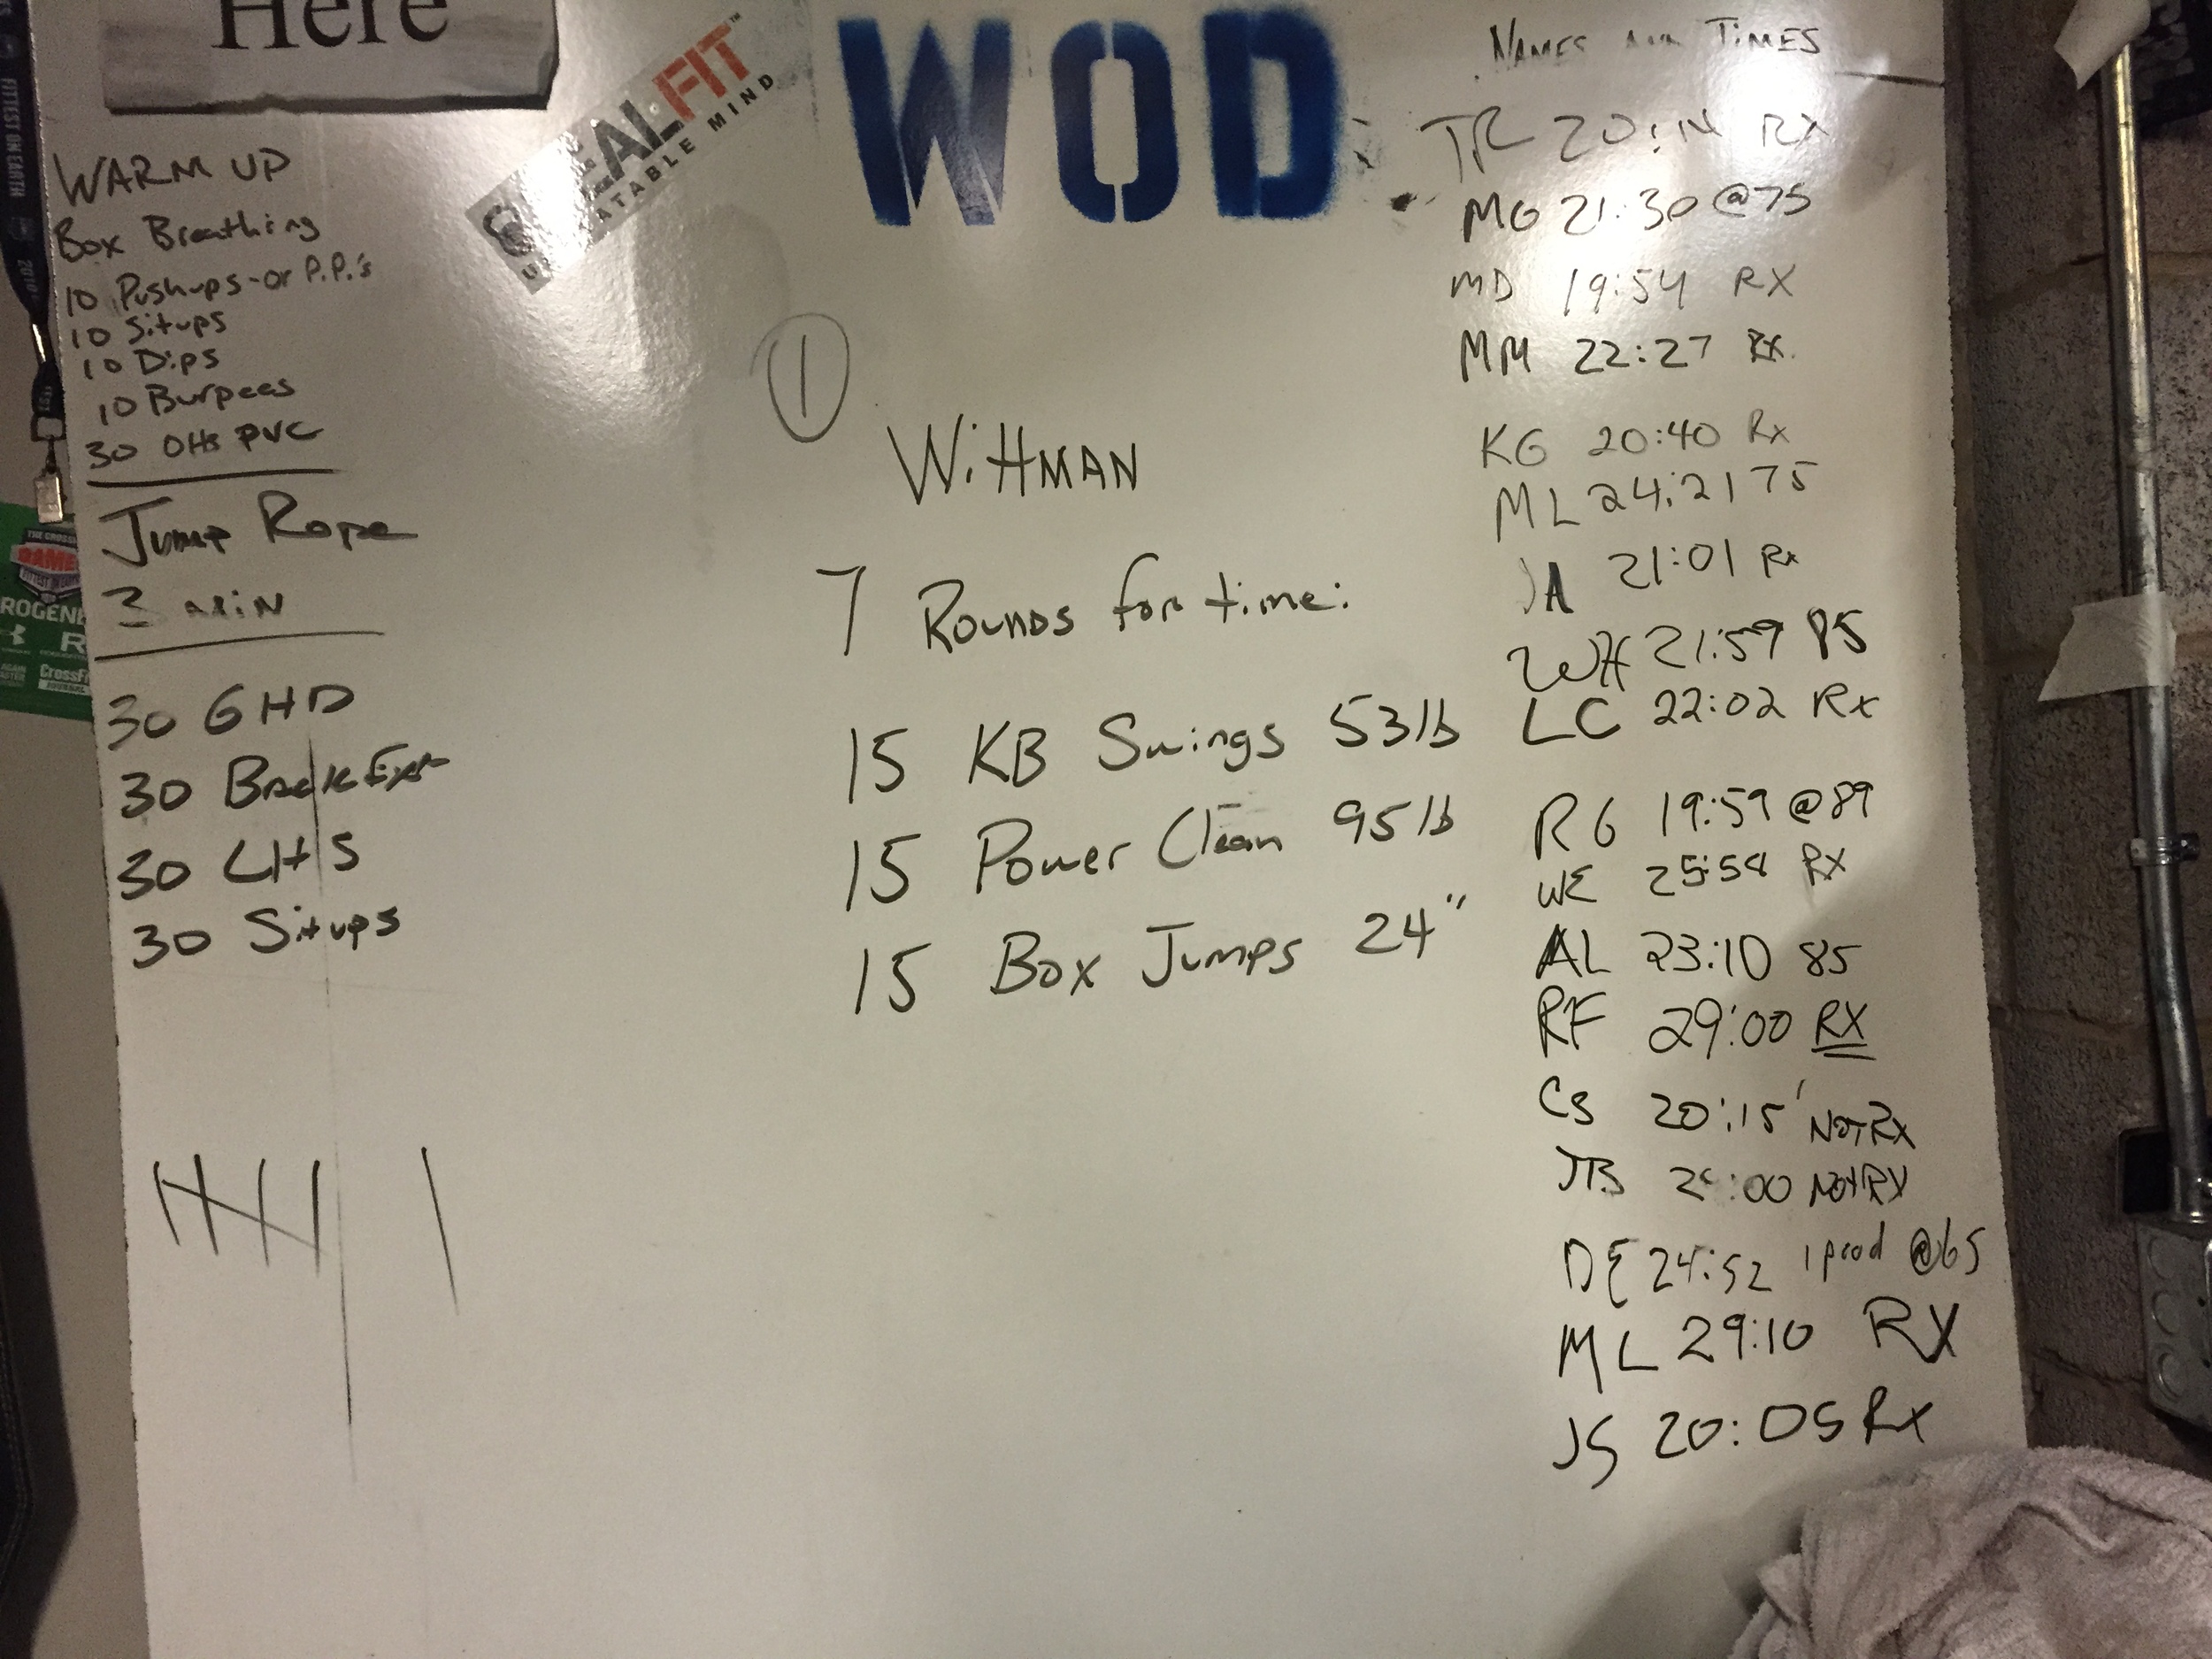 Here
WARM UP
Box Breathing
10 Pushups-or P.P.'s
10 Situps
10 Dips
10 Burpees
30 OHS PVC
Jump Rope
3 min
30 GHD
30 Back Ext
30 LHS
30 Situps
SEALFIT™
UNBEATABLE MIND
WOD
1
WittMAN
7 Rounds for time:
15 KB Swings 53lb
15 Power Clean 95lb
15 Box Jumps 24"
NAMES TIMES
TR 20:14 RX
MG 21:30 @75
MD 19:54 RX
MM 22:27 RX.
KG 20:40 Rx
ML 24:21 75
JA 21:01 Rx
WH 21:59 85
LC 22:02 Rx
RG 19:59 @89
WE 25:58 RX
AL 23:10 85
RF 29:00 RX
CS 20:15 NOT RX
JB :00 NOT RX
DE 24:52 1 pood @65
ML 29:10 RX
JS 20:05 Rx
FITTEST ON EARTH
2010
THE CROSSFIT
GAMES
ROGENE
R
CrossFit
JOURNAL